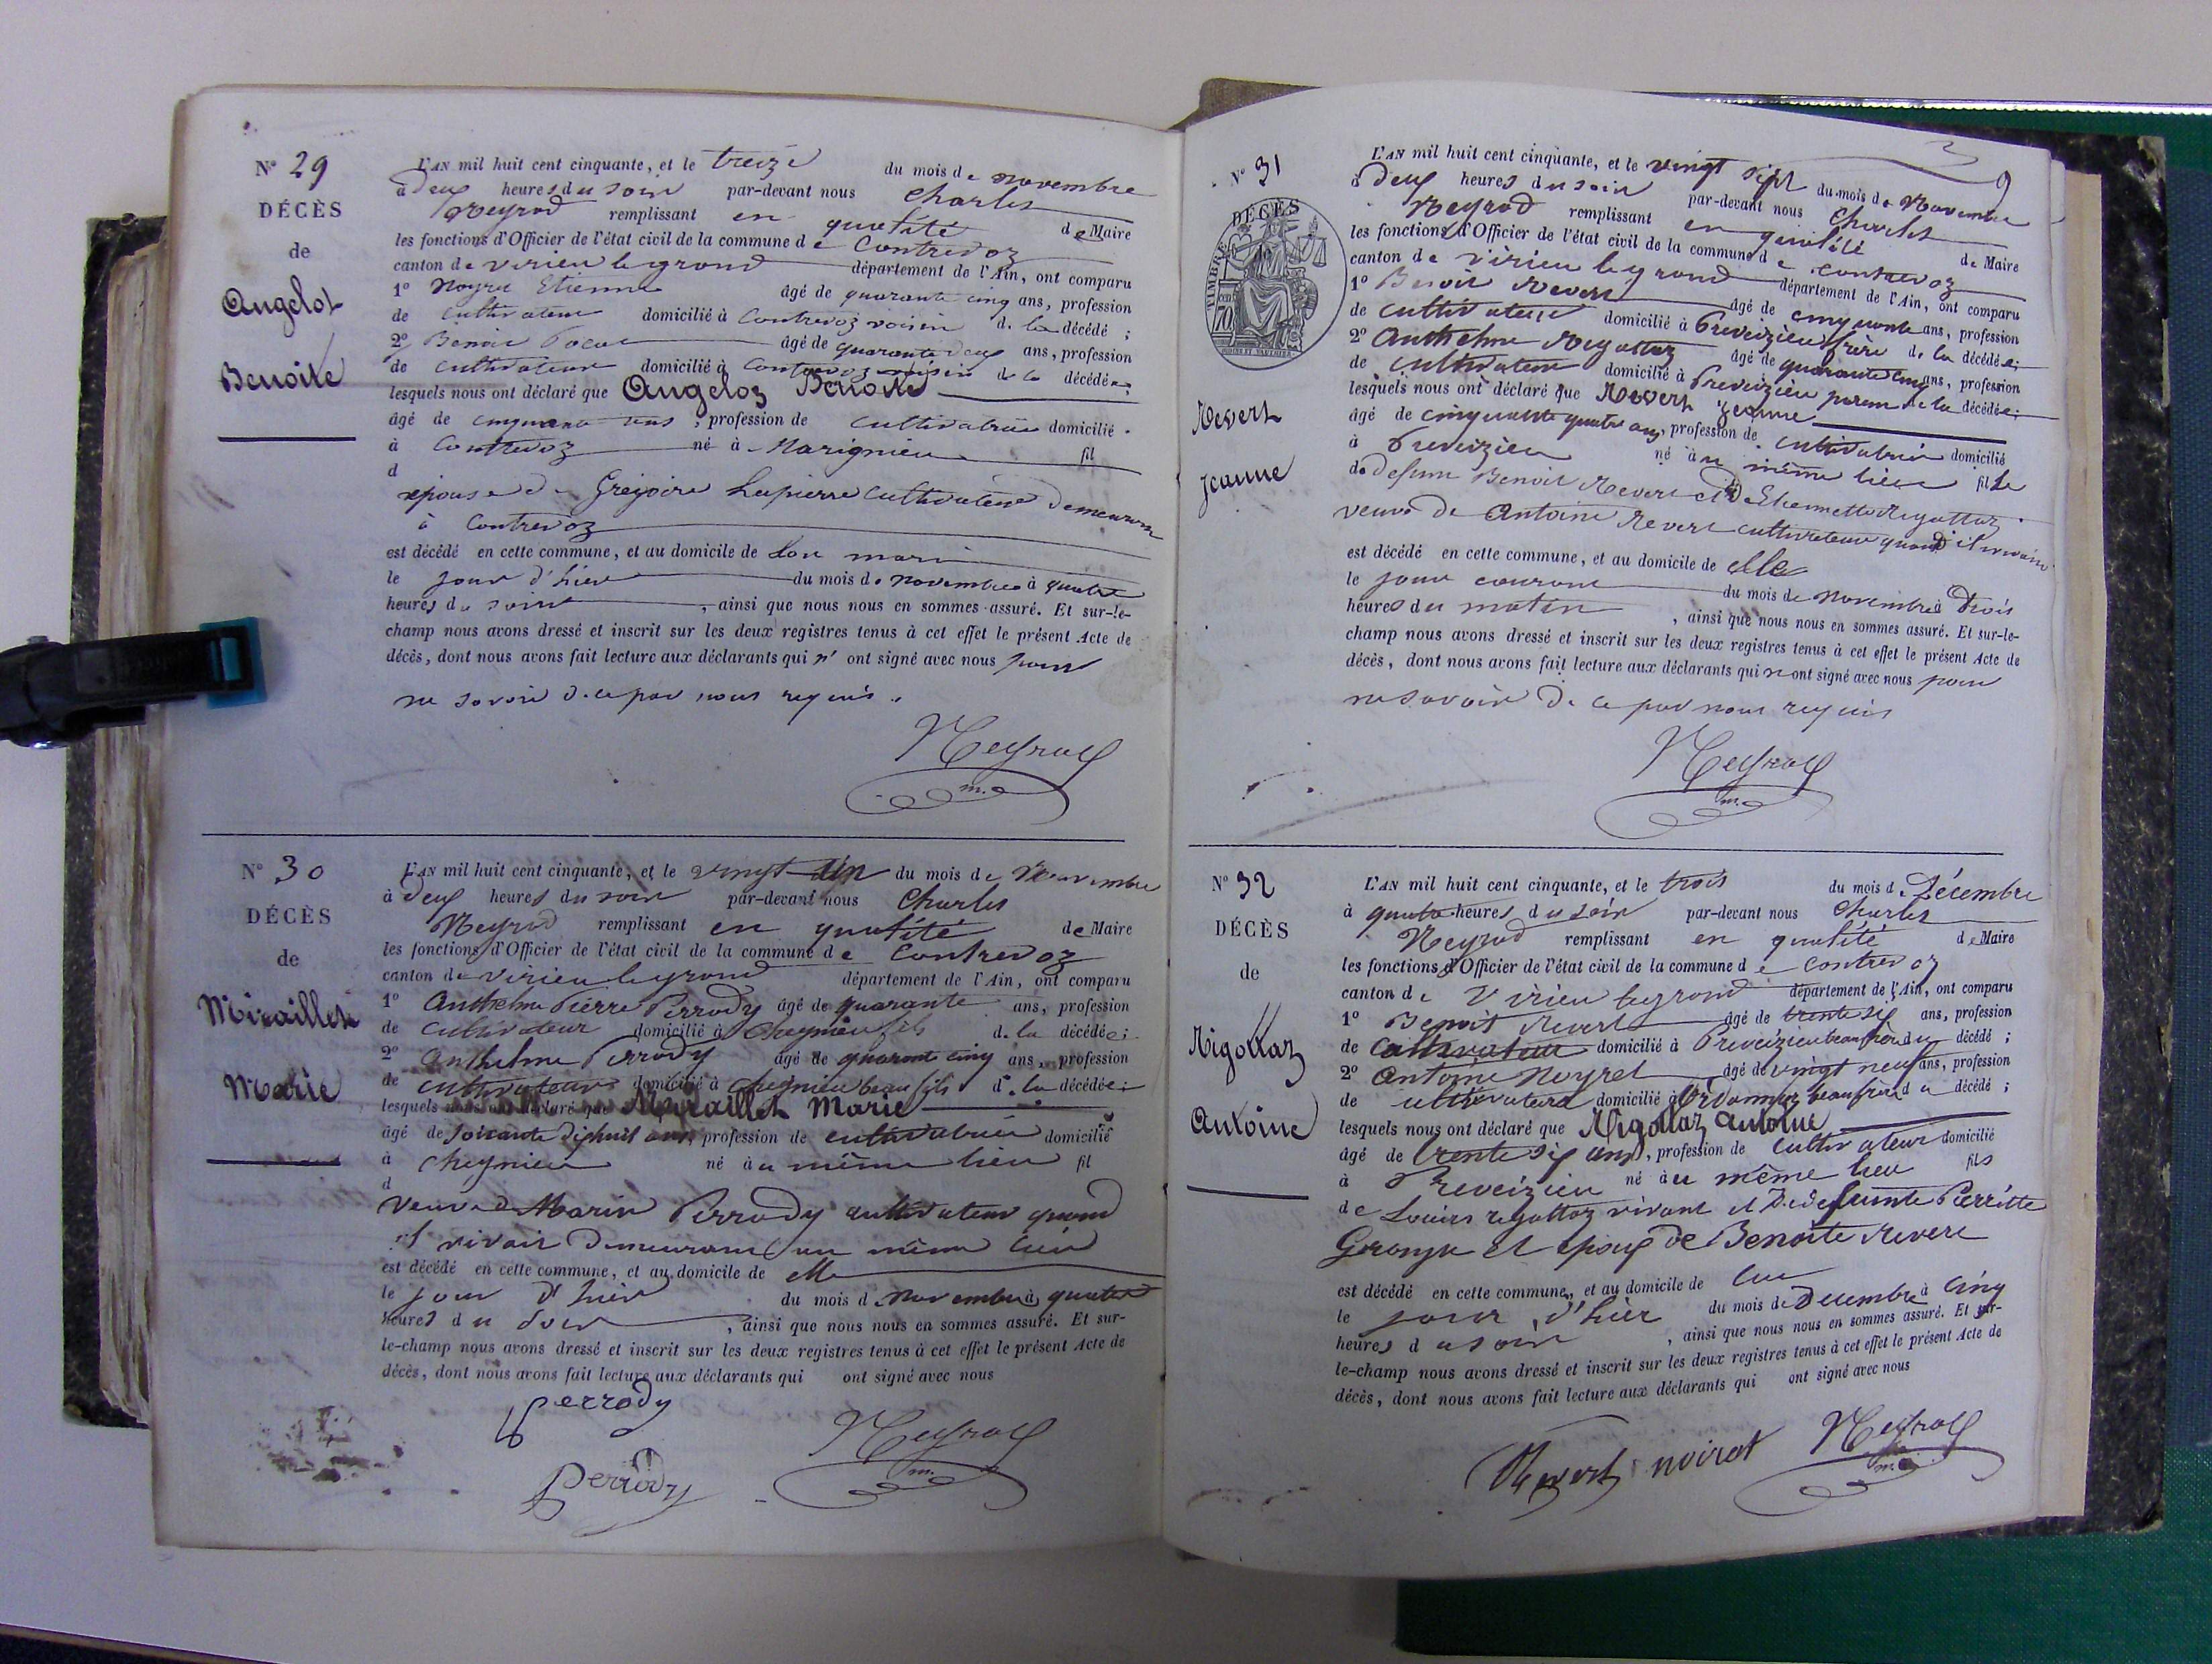 N° 29
DÉCÈS
de
Angelot
Benoite
L'AN mil huit cent cinquante, et le treize du mois de novembre
à deux heures du soir par-devant nous Charles
Neyrod remplissant en qualité de Maire
les fonctions d'Officier de l'état civil de la commune de Contrevoz
canton de virieu le grand département de l'Ain, ont comparu
1° Noyret Etienne âgé de quarante cinq ans, profession
de cultivateur domicilié à Contrevoz voisin de la décédé ;
2° Benoit âgé de quarante deux ans, profession
de cultivateur domicilié à Contrevoz voisin de la décédée ;
lesquels nous ont déclaré que Angeloz Benoite
âgé de cinquante ans, profession de cultivatrice domicilié
à Contrevoz né à Marignieu fil
d
épouse de Grégoire Lapierre cultivateur demeurant
à Contrevoz
est décédé en cette commune, et au domicile de Son mari
le jour d'hier du mois de novembre à quatre
heures du soir, ainsi que nous nous en sommes assuré. Et sur-le-
champ nous avons dressé et inscrit sur les deux registres tenus à cet effet le présent Acte de
décès, dont nous avons fait lecture aux déclarants qui n'ont signé avec nous pour
ne savoir de ce par nous requis.
Neyrod
m.
N° 30
DÉCÈS
de
Miraillet
Marie
L'AN mil huit cent cinquante, et le vingt un du mois de Novembre
à deux heures du soir par-devant nous Charles
Neyrod remplissant en qualité de Maire
les fonctions d'Officier de l'état civil de la commune de Contrevoz
canton de virieu le grand département de l'Ain, ont comparu
1° Anthelme Pierre Perrody âgé de quarante ans, profession
de cultivateur domicilié à Cheynieu fils de la décédée ;
2° Anthelme Perrody âgé de quarante cinq ans, profession
de cultivateur domicilié à Cheynieu beau fils de la décédée ;
lesquels nous ont déclaré que Miraillet Marie
âgé de soixante dixhuit ans, profession de cultivatrice domicilié
à Cheynieu né au même lieu fil
d
veuve de Marin Perrody cultivateur quand
il vivait demeurant au même lieu
est décédé en cette commune, et au domicile de elle
le jour d'hier du mois de novembre à quatre
heures du soir, ainsi que nous nous en sommes assuré. Et sur-
le-champ nous avons dressé et inscrit sur les deux registres tenus à cet effet le présent Acte de
décès, dont nous avons fait lecture aux déclarants qui ont signé avec nous
Perrody
Perrody
Neyrod
m.
9
N° 31
DÉCÈS
de
TIMBRE
70
Revert
Jeanne
L'AN mil huit cent cinquante, et le vingt sept du mois de Novembre
à deux heures du soir par-devant nous Charles
Neyrod remplissant en qualité de Maire
les fonctions d'Officier de l'état civil de la commune de Contrevoz
canton de virieu le grand département de l'Ain, ont comparu
1° Benoit Revert âgé de cinquante ans, profession
de cultivateur domicilié à Preveizieu frère de la décédée ;
2° Anthelme Rigottaz âgé de quarante cinq ans, profession
de cultivateur domicilié à Preveizieu parent de la décédée ;
lesquels nous ont déclaré que Revert Jeanne
âgé de cinquante quatre ans, profession de cultivatrice domicilié
à Preveizieu né au même lieu fille
de defunt Benoit Revert et de Etiennette Rigottaz
veuve de Antoine Revert cultivateur quand il vivait
est décédé en cette commune, et au domicile de elle
le jour courant du mois de novembre à trois
heures du matin, ainsi que nous nous en sommes assuré. Et sur-le-
champ nous avons dressé et inscrit sur les deux registres tenus à cet effet le présent Acte de
décès, dont nous avons fait lecture aux déclarants qui n ont signé avec nous pour
ne savoir de ce par nous requis
Neyrod
m.
N° 32
DÉCÈS
de
Rigottaz
Antoine
L'AN mil huit cent cinquante, et le trois du mois de Décembre
à quatre heures du soir par-devant nous Charles
Neyrod remplissant en qualité de Maire
les fonctions d'Officier de l'état civil de la commune de Contrevoz
canton de Virieu le grand département de l'Ain, ont comparu
1° Benoit Revert âgé de trente six ans, profession
de cultivateur domicilié à Preveizieu beau frère du décédé ;
2° Antoine Noyret âgé de vingt neuf ans, profession
de cultivateur domicilié à Ordonnaz beau frère du décédé ;
lesquels nous ont déclaré que Rigottaz Antoine
âgé de trente six ans, profession de cultivateur domicilié
à Preveizieu né au même lieu fils
de Louis rigottaz vivant et de defunte Pierrette
Grange et époux de Benoite Revert
est décédé en cette commune, et au domicile de lui
le jour d'hier du mois de Décembre à cinq
heures du soir, ainsi que nous nous en sommes assuré. Et sur-
le-champ nous avons dressé et inscrit sur les deux registres tenus à cet effet le présent Acte de
décès, dont nous avons fait lecture aux déclarants qui ont signé avec nous
Revert noiret Neyrod
m.